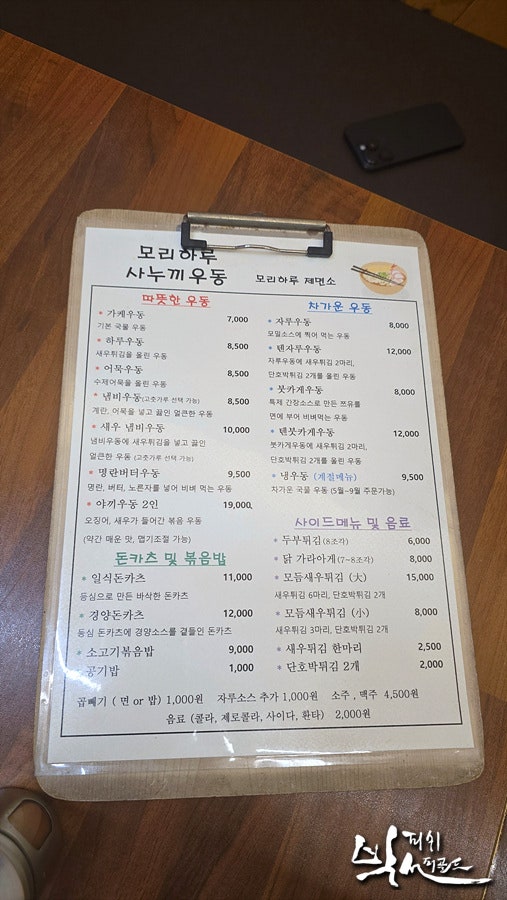 모리하루
사누끼우동
모리하루 제면소
따뜻한 우동
* 가케우동 7,000
기본 국물 우동
* 하루우동 8,500
새우튀김을 올린 우동
* 어묵우동 8,500
수제어묵을 올린 우동
* 냄비우동(고춧가루 선택 가능) 8,500
계란, 어묵을 넣고 끓인 얼큰한 우동
* 새우 냄비우동 10,000
냄비우동에 새우튀김을 넣고 끓인
얼큰한 우동 (고춧가루 선택 가능)
* 명란버터우동 9,500
명란, 버터, 노른자를 넣어 비벼 먹는 우동
* 야끼우동 2인 19,000
오징어, 새우가 들어간 볶음 우동
(약간 매운 맛, 맵기조절 가능)
돈카츠 및 볶음밥
* 일식돈카츠 11,000
등심으로 만든 바삭한 돈카츠
* 경양돈카츠 12,000
등심 돈카츠에 경양소스를 곁들인 돈카츠
* 소고기볶음밥 9,000
* 공기밥 1,000
차가운 우동
* 자루우동 8,000
모밀소스에 찍어 먹는 우동
* 텐자루우동 12,000
자루우동에 새우튀김 2마리,
단호박튀김 2개를 올린 우동
* 붓카게우동 8,000
특제 간장소스로 만든 쯔유를
면에 부어 비벼먹는 우동
* 텐붓카게우동 12,000
붓카게우동에 새우튀김 2마리,
단호박튀김 2개를 올린 우동
* 냉우동 (계절메뉴) 9,500
차가운 국물 우동 (5월~9월 주문가능)
사이드메뉴 및 음료
* 두부튀김(8조각) 6,000
* 닭 가라아게(7~8조각) 8,000
* 모듬새우튀김 (大) 15,000
새우튀김 6마리, 단호박튀김 2개
* 모듬새우튀김 (小) 8,000
새우튀김 3마리, 단호박튀김 2개
* 새우튀김 한마리 2,500
* 단호박튀김 2개 2,000
곱빼기 ( 면 or 밥) 1,000원 자루소스 추가 1,000원 소주 , 맥주 4,500원
음료 (콜라, 제로콜라, 사이다, 환타) 2,000원